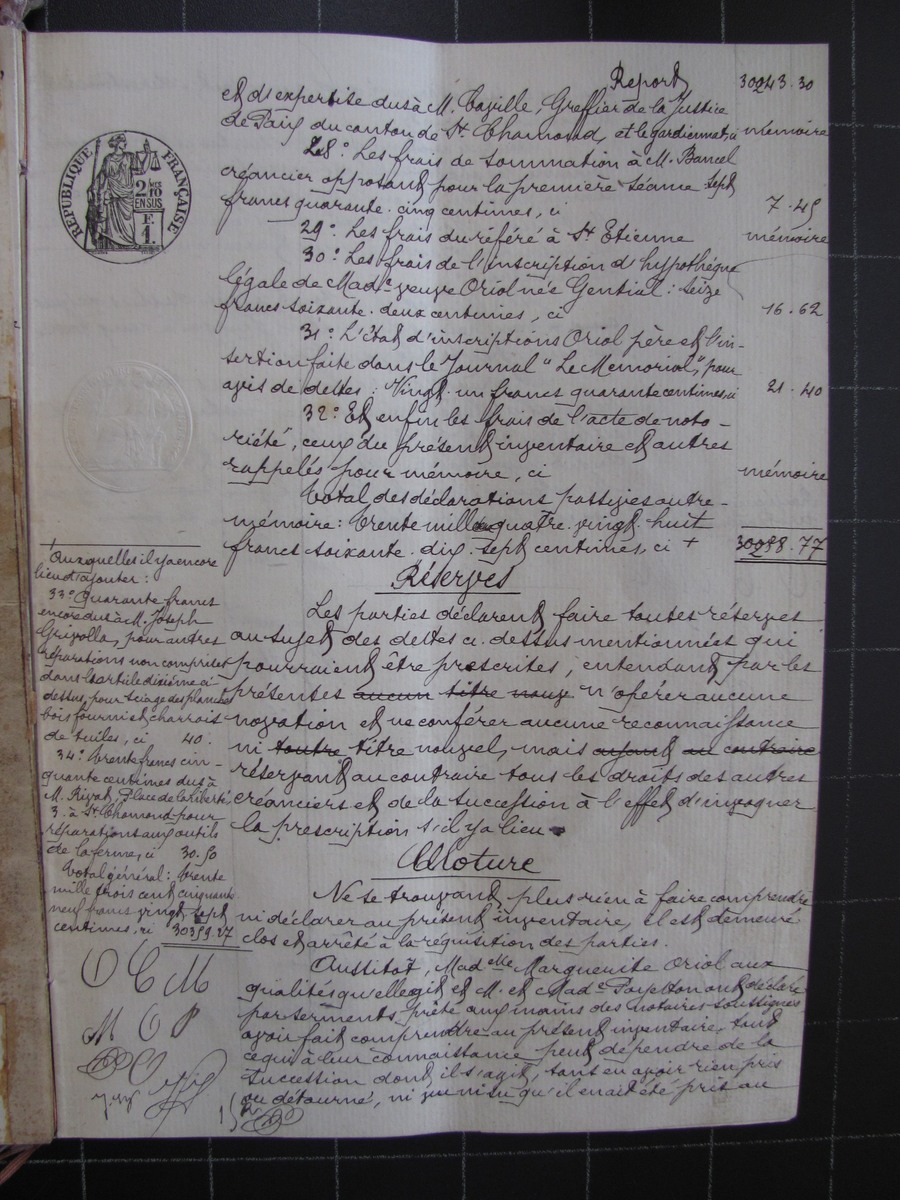 Report 30243.30
et d'expertise dus à M. Coville, Greffier de la Justice
de Paix du canton de St Chamond, et le gardiennat, ci mémoire
28° Les frais de sommation à M. Bancel
créancier opposant pour la première séance sept
francs quarante-cinq centimes, ci 7.45
29° Les frais du référé à St Etienne mémoire
30° Les frais de l'inscription d'hypothèque
légale de Made veuve Oriol née Gential : seize
francs soixante-deux centimes, ci 16.62
31° L'état d'inscriptions Oriol père et l'in-
sertion faite dans le Journal "Le Memorial", pour
avis de dettes : Vingt-un francs quarante centimes, ci 21.40
32° Et enfin les frais de l'acte de noto-
riété, ceux du présent inventaire et autres
rappelés pour mémoire, ci mémoire
Total des déclarations passives outre-
mémoire : Trente mille quatre-vingt-huit
francs soixante-dix-sept centimes, ci + 30288.77
Réserves
Les parties déclarent faire toutes réserves
au sujet des dettes ci-dessus mentionnées qui
pourraient être prescrites, entendant par les
présentes aucun titre nouv n'opérer aucune
novation et ne conférer aucune reconnaissance
ni toutre titre nouvel, mais ayant au contraire
réservant au contraire tous les droits des autres
créanciers et de la succession à l'effet d'invoquer
la prescription s'il y a lieu
Cloture
Ne se trouvant plus rien à faire comprendre
ni déclarer au présent inventaire, il est demeuré
clos et arrêté à la réquisition des parties.
Aussitôt, Madelle Marguerite Oriol aux
qualités qu'elle agit et M. et Made ont déclaré
par serments prêté aux mains des notaires soussignés
avoir fait comprendre au présent inventaire, tout
ce qui à leur connaissance peut dépendre de la
succession dont il s'agit, sans en avoir rien pris
ou détourné, ni vu ni su qu'il en ait été pris ou
RÉPUBLIQUE FRANÇAISE
2/10 EN SUS
F.
1.
+ Auxquelles il y a encore
lieu d'ajouter :
33° Quarante francs
encore dus à M. Joseph
Grivolla, pour autres
réparations non comprises
dans l'article dixième ci-
dessus, pour sciage des planches
bois fourni et charrois
de tuiles, ci 40.
34° Trente francs cin-
quante centimes dus à
M. Rivat, Place de la liberté
3. à St Chamond pour
réparations aux outils
de la ferme, ci 30.50
Total général : Trente
mille trois cent cinquante
neuf francs vingt sept
centimes, ci 30359.27
O C M
M O P